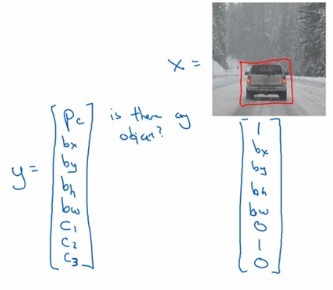 x =
y =
Pc
bx
by
bh
bw
C1
C2
C3
is there any
object?
1
bx
by
bh
bw
0
1
0